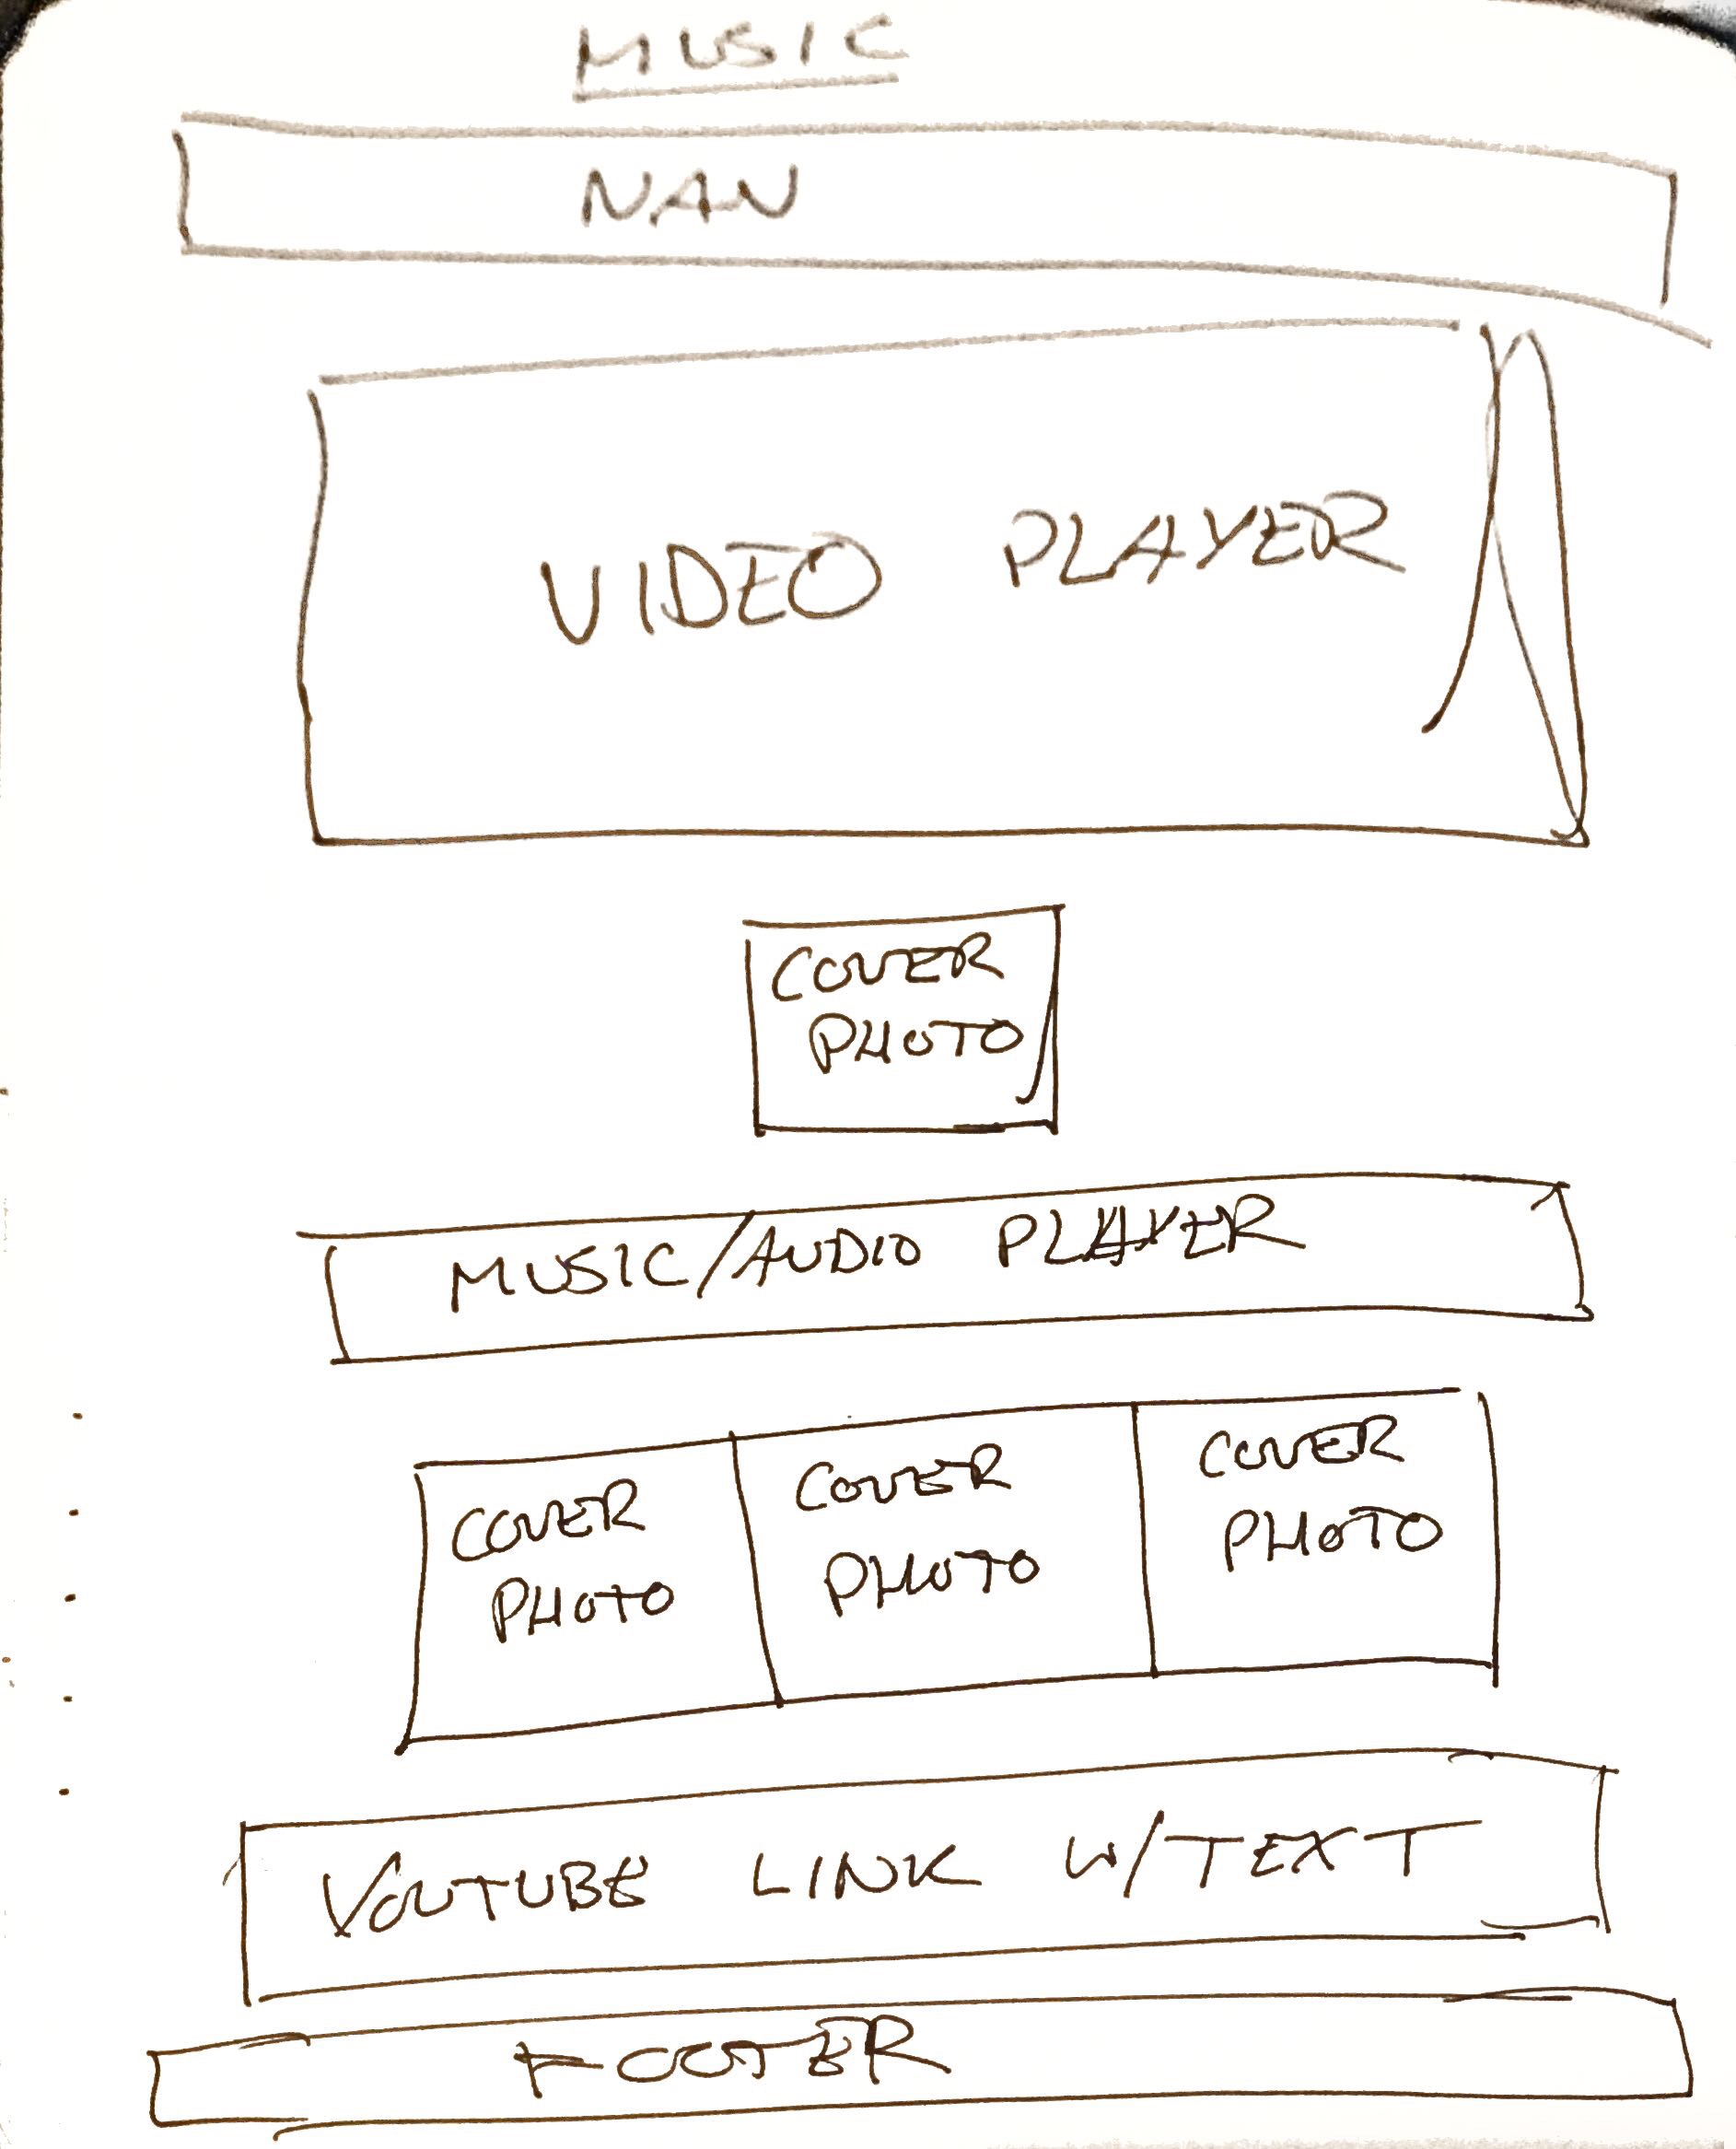 MUSIC
NAV
VIDEO PLAYER
COVER
PHOTO
MUSIC/AUDIO PLAYER
COVER COVER COVER
PHOTO PHOTO PHOTO
YOUTUBE LINK W/TEXT
FOOTER